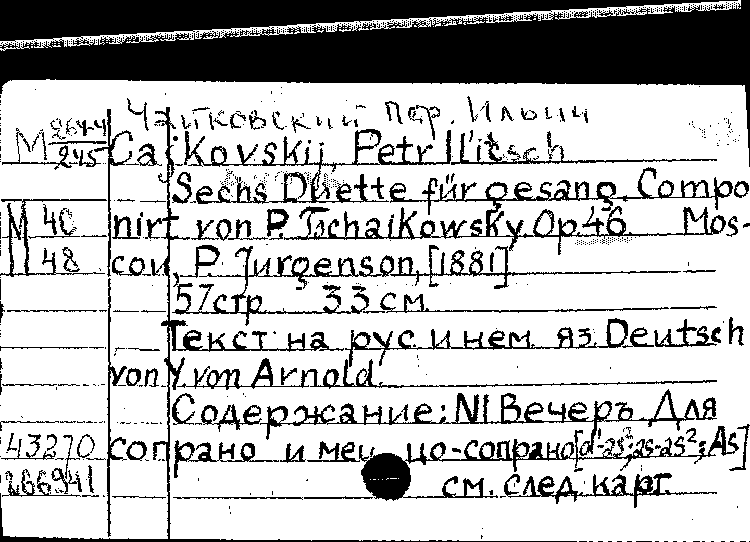 Чайковский Пер. Ильич
М 264-4/245 Čajkovskij, Petr Il'itsch
Sechs Duette für gesang. Compo
М 40 nirt von P. Tschaikowsky. Op. 46. Mos-
П 48 cou, P. Jurgenson, [1881]
57 стр 33 см.
Текст на рус. и нем. яз. Deutsch
von Y. von Arnold.
Содержание: N1 Вечеръ. Для
43270 сопрано и мец цо-сопрано [d'-as²; as-as²; As]
266941 см. след. карт.